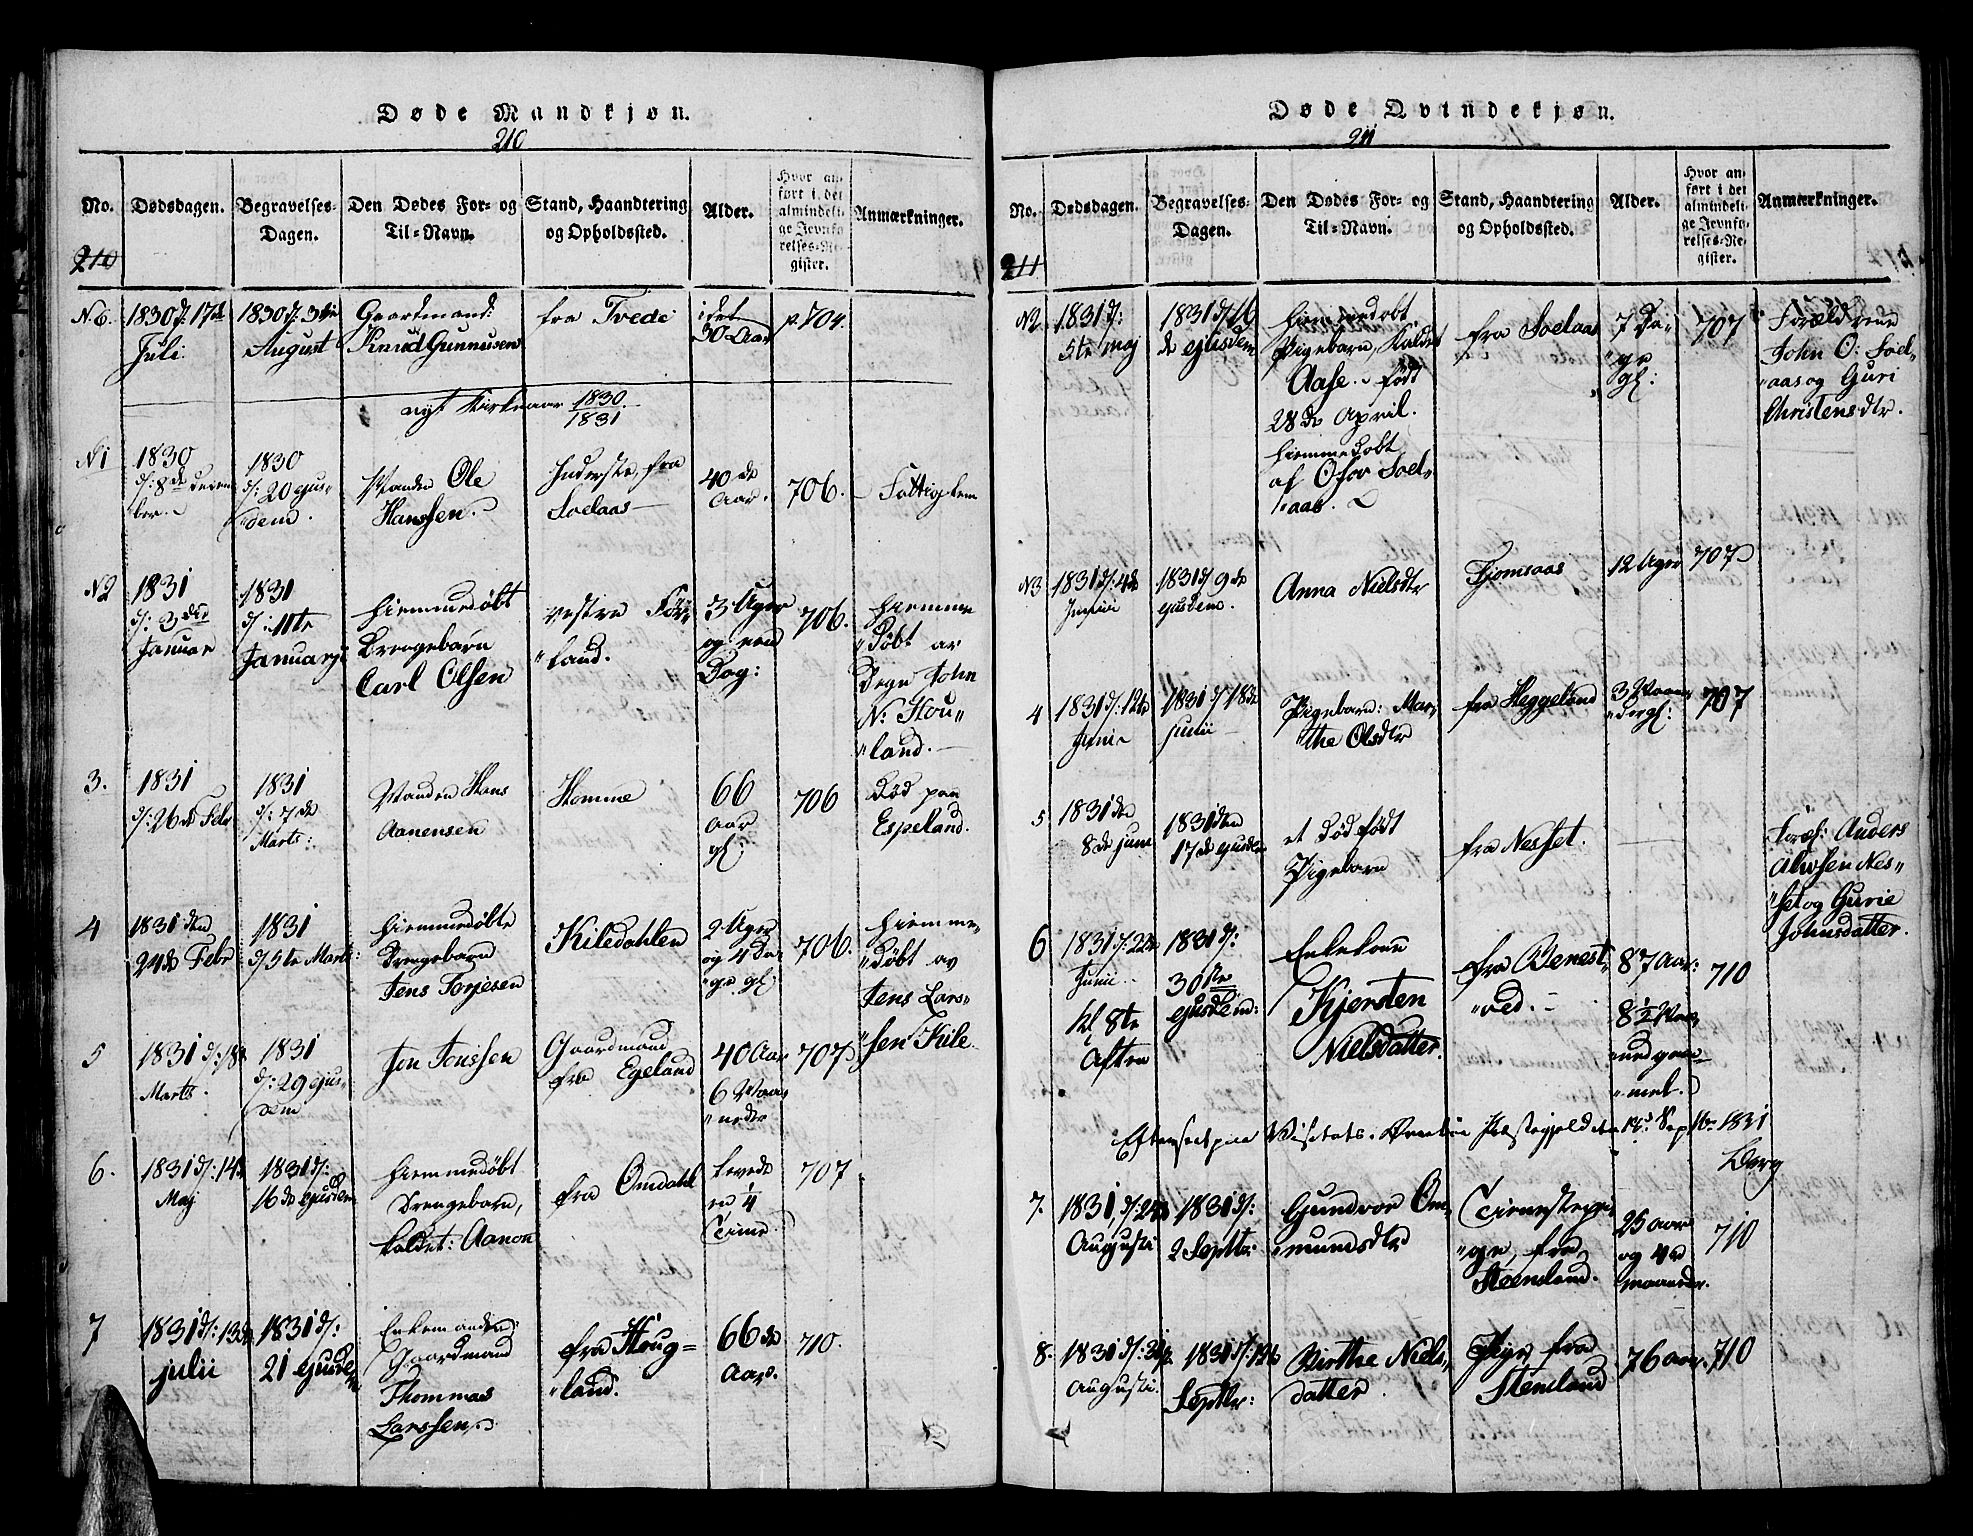 Døde Mandkjøn.
210
No.
Dødsdagen.
Begravelses-
Dagen.
Den Dødes For- og
Til-Navn.
Stand, Haandtering
og Opholdssted.
Alder.
Hvor an-
ført i det
almindeli-
ge Jevnfø-
relses-Re-
gister.
Anmærkninger.
210
N6.
1830 d: 17de
Juli
1830 d: 3die
August
Gaardmand:
Knud Gunnusen
fra Tvede
i det
30 Aar
p. 704.
nyt Kirkeaar 1830
1831
N1
1830
d: 8de decem
ber.
1830
d: 20 ejus-
dem.
Manden Ole
Hanssen.
Inderste, fra
Soelaas
40de
Aar.
706.
Fattiglem
N2
1831
d: 3die
Januar
1831
d: 11te
Januarii
Hiemmedøbt
Drengebarn
Carl Olsen
vestre Før-
land.
3 Uger
og een
Dag:
706.
Hiemme
døbt av
Degn John
N: Hou-
land.
3.
1831
d: 26de Febr
1831
d: 7de
Marts:
Manden Hans
Aanensen
Homme
66
Aar
gl:
706
Død paa
Espeland.
4
1831 den
24de Febr
1831
d: 5te Marts:
Hiemmedøbte
Drengebarn
Jens Torjesen
Kiledahlen
2 Uger
og 4 Da-
ge gl:
706.
Hiemme-
døbt av
Jens Lars-
sen Kile.
5
1831 d: 18de
Marts.
1831
d: 29 ejus-
dem
Jon Jonssen
Gaardmand
fra Egeland
40 Aar
6 Maa-
neder
707
6.
1831 d: 14de
Maj
1831 d:
16de ejusdem
Hiemmedøbt
Drengebarn,
kaldet: Aanon
fra Omdahl
levede
en 1/4
Time.
707
7
1831 d: 13de
julii
1831 d:
21 ejusdem
Enkemanden:
Gaardmand
Thommas
Larssen.
fra Houg-
land.
66de
Aar.
710.
Døde Qvindekjøn.
211
No.
Dødsdagen.
Begravelses-
Dagen.
Den Dødes For- og
Til-Navn.
Stand, Haandtering
og Opholdssted.
Alder.
Hvor an-
ført i det
almindeli-
ge Jevnfø-
relses-Re-
gister.
Anmærkninger.
211
N2
1831 d:
5te maj
1831 d: 16
de ejusdem
Hiemmedøbt
Pigebarn, kaldet
Aase. født
28de April.
hiemmedøbt
af Osov Soel-
aas.
fra Soelaas
7 Da-
ge
gl:
707
Forældrene
John O: Soel-
aas og Guri
Christensdtr.
N3
1831 d: 4de
Junii
1831 d: 9de
ejusdem.
Anna Nielsdtr
Tjomsaas
12 Uger
707
4
1831 d: 12te
Juni
1831 d: 18de
junii
Pigebarn: Mar-
the Olsdtr
fra Heggeland
3 Maane-
der gl:
707
5
1831 den
8de juni
1831 den
17de ejusdem
et dødfødt
Pigebarn
fra Nesset.
Foræl: Anders
Alwsen Nes-
set og Gurie
Johnsdatter.
6
1831 d: 22de
Junii
kl 8te
Aften
1831 d:
30te
ejusdem:
Enkekone
Kjersten
Nielsdatter.
fra Benest-
ved.
87 Aar:
8 1/2 Maa-
ned gam-
mel.
710
Efterseet paa Visitats i Præstegjeldet Septbr 1831
7.
1831, d: 24de
Augusti
1831 d:
2 Septbr:
Gundvor Om-
mundsdtr
Tienestepi-
ge, fra
Steensland.
25 aar
og 4re
maaneder.
710
8.
1831 d: 31te
Augusti.
1831 d: 12te
Septbr:
Birthe Niels-
datter.
Pige, fra
Stensland
76 aar.
710